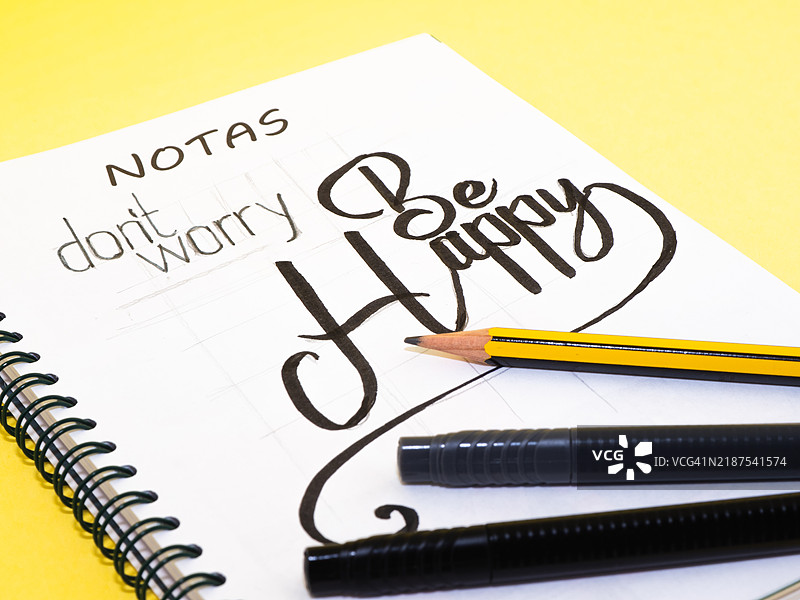 NOTAS
don't
worry
Be
Happy
VCG
ID: VCG41N2187541574